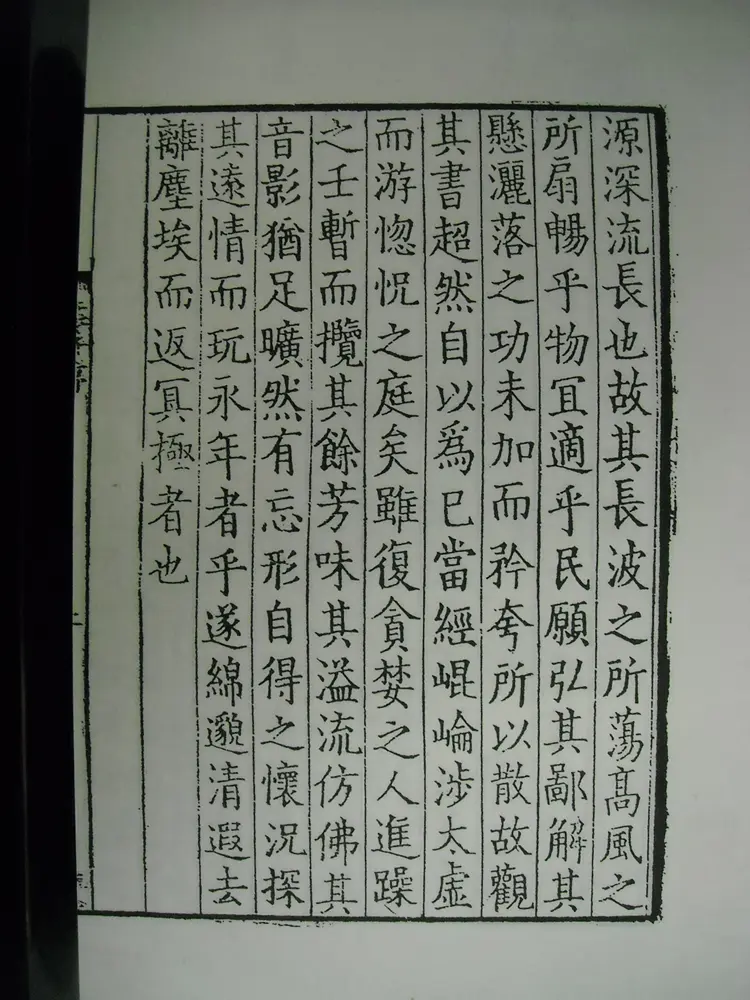 源深流長也故其長波之所蕩髙風之
所扇暢乎物冝適乎民願弘其鄙解其
懸灑落之功未加而矜夸所以散故觀
其書超然自以爲已當經崐崘涉太虛
而游惚怳之庭矣雖復貪婪之人進躁
之士暫而攬其餘芳味其溢流仿佛其
音影猶足曠然有忘形自得之懷況探
其逺情而玩永年者乎遂綿邈清遐去
離塵埃而返冥極者也